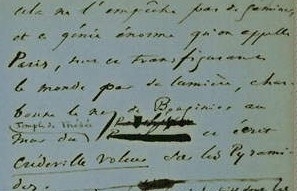 cela ne l'empêche pas de gaminer
et ce génie énorme qu'on appelle
Paris, tout en transfigurant
le monde par sa lumière, char-
bonne le nez de Bouginier au
temple de Thésée
mur du et écrit
Crédeville voleur sur les Pyrami-
des.